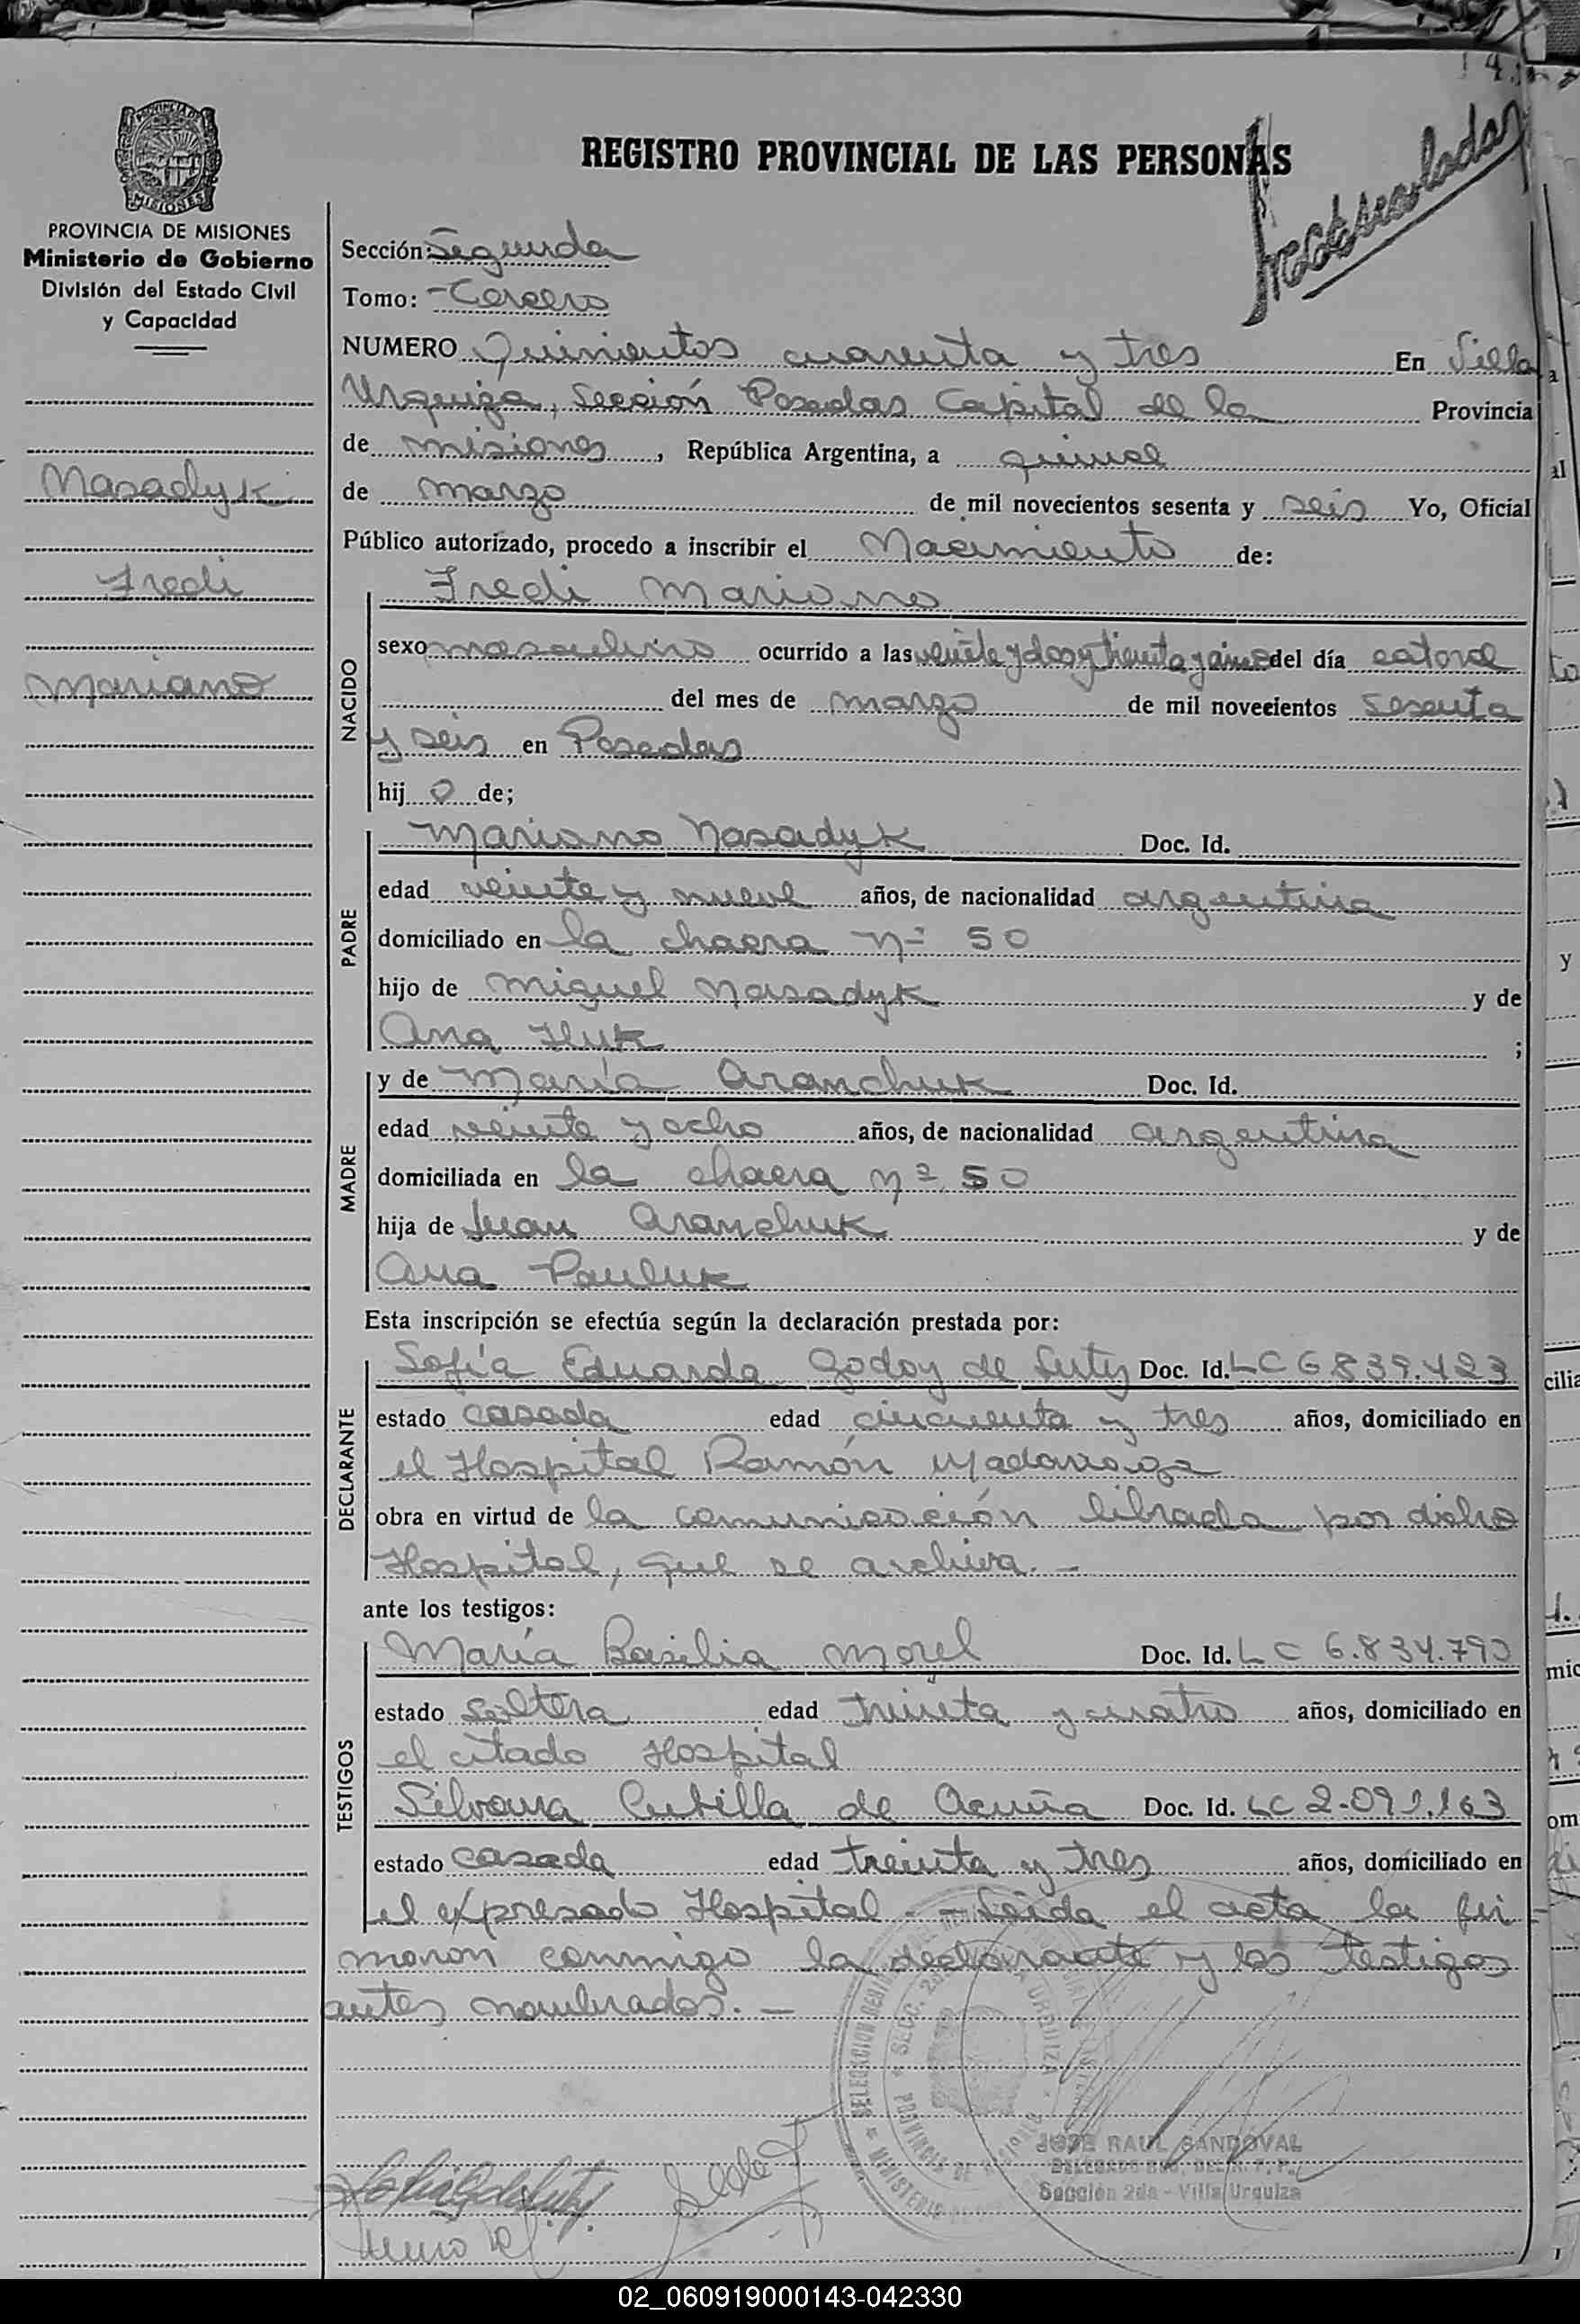 REGISTRO PROVINCIAL DE LAS PERSONAS
PROVINCIA DE MISIONES
Ministerio de Gobierno
División del Estado Civil
y Capacidad
Nasadyk
Fredi
Mariano
Sección: Segunda
Tomo: Tercero
NUMERO Quinientos cuarenta y tres En Villa
Urquiza, Sección Posadas Capital de la Provincia
de misiones, República Argentina, a quince
de marzo de mil novecientos sesenta y seis Yo, Oficial
Público autorizado, procedo a inscribir el Nacimiento de:
NACIDO
Fredi Mariano
sexo masculino ocurrido a las veinte y dos y treinta y cinco del día catorce
del mes de marzo de mil novecientos sesenta
y seis en Posadas
hij o de;
PADRE
Mariano Nasadyk Doc. Id.
edad veinte y nueve años, de nacionalidad argentina
domiciliado en la chacra nº 50
hijo de Miguel Nasadyk y de
Ana Iluk ;
MADRE
y de María Aranchuk Doc. Id.
edad veinte y ocho años, de nacionalidad argentina
domiciliada en la chacra nº 50
hija de Juan Aranchuk y de
Ana Pauluk
Esta inscripción se efectúa según la declaración prestada por:
DECLARANTE
Sofía Eduarda Godoy de Luty Doc. Id. LC 6.839.423
estado casada edad cincuenta y tres años, domiciliado en
el Hospital Ramón Madariaga
obra en virtud de la comunicación librada por dicho
Hospital, que se archiva. -
ante los testigos:
TESTIGOS
María Basilia Morel Doc. Id. LC 6.834.790
estado soltera edad treinta y cuatro años, domiciliado en
el citado Hospital
Silvana Cubilla de Acuña Doc. Id. LC 2.091.163
estado casada edad treinta y tres años, domiciliado en
el expresado Hospital. - Leída el acta la fir-
maron conmigo la declarante y los testigos
antes nombrados. -
JOSE RAUL SANDOVAL
Sección 2da - Villa Urquiza
02_060919000143-042330